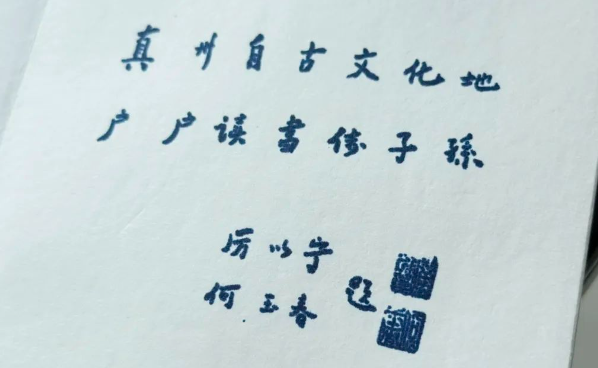 真州自古文化地
户户读书传子孙
厉以宁
何玉春 题